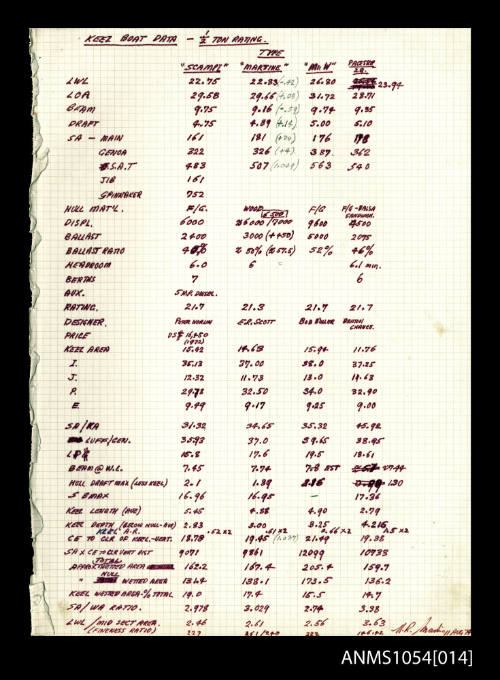 KEEL BOAT DATA - ½ TON RATING.
TYPE
"SCAMPI" "MARTINE" "Mr W"
LWL 22.75 22.83 26.20 23.94
LOA 29.58 29.66 31.72 28.71
BEAM 9.75 9.16 9.74 9.35
DRAFT 4.75 4.89 5.00 5.10
SA - MAIN 161 181 176 178
GENOA 322 326 (+4) 387 362
S.A.T 483 507 563 540
JIB 161
SPINNAKER 752
HULL MAT'L. F/G. WOOD F/G F/G-BALSA SANDWICH.
DISPL. 6000 6000/7000 9600 4500
BALLAST 2400 3000 (+450) 5000 2075
BALLAST RATIO 40% 50% 52% 46%
HEADROOM 6.0 6 6.1 min.
BERTHS 7 6
AUX. 5 H.P. DIESEL.
RATING. 21.7 21.3 21.7 21.7
DESIGNER. PETER NORLIN E.R. SCOTT BOB MILLER BRITTON CHANCE.
PRICE US$ 16,450
(1972)
KEEL AREA 15.42 14.63 15.94 11.76
I. 35.13 37.00 38.0 37.25
J. 12.32 11.73 13.0 14.63
P. 32.50 34.0 32.40
E. 9.49 9.17 9.25 9.00
SA/KA 31.32 34.65 35.32 45.92
LUFF/GEN. 37.0 39.65 38.95
15.8 17.6 19.5 18.61
BEAM @ W.L. 7.45 7.74 7.8 EST 7.44
HULL DRAFT MAX (LESS KEEL) 2.1 1.89 1.30
S EMAX 16.96 16.95 - 17.36
KEEL LENGTH (AVE) 5.45 4.88 4.90 2.79
KEEL DEPTH (BELOW HULL-AVE) 2.83 3.00 3.25 4.215
KEEL A.R. .52 x2 .61 x2 .66 x2 1.5 x2
CE TO CLR OF KEEL-VERT. 18.78 19.45 21.49 19.38
SA x CE TO CLR VERT DIST 9071 9861 12099 10733
TOTAL
APPROX WETTED AREA 162.2 167.4 205.4 159.7
HULL
" WETTED AREA 131.4 138.1 173.5 136.2
KEEL WETTED AREA-% TOTAL 19.0 17.4 15.5 14.7
SA/WA RATIO. 2.978 3.029 2.74 3.38
LWL/MID SECT AREA. 2.46 2.61 2.56 3.63
(FINENESS RATIO)
ANMS1054[014]